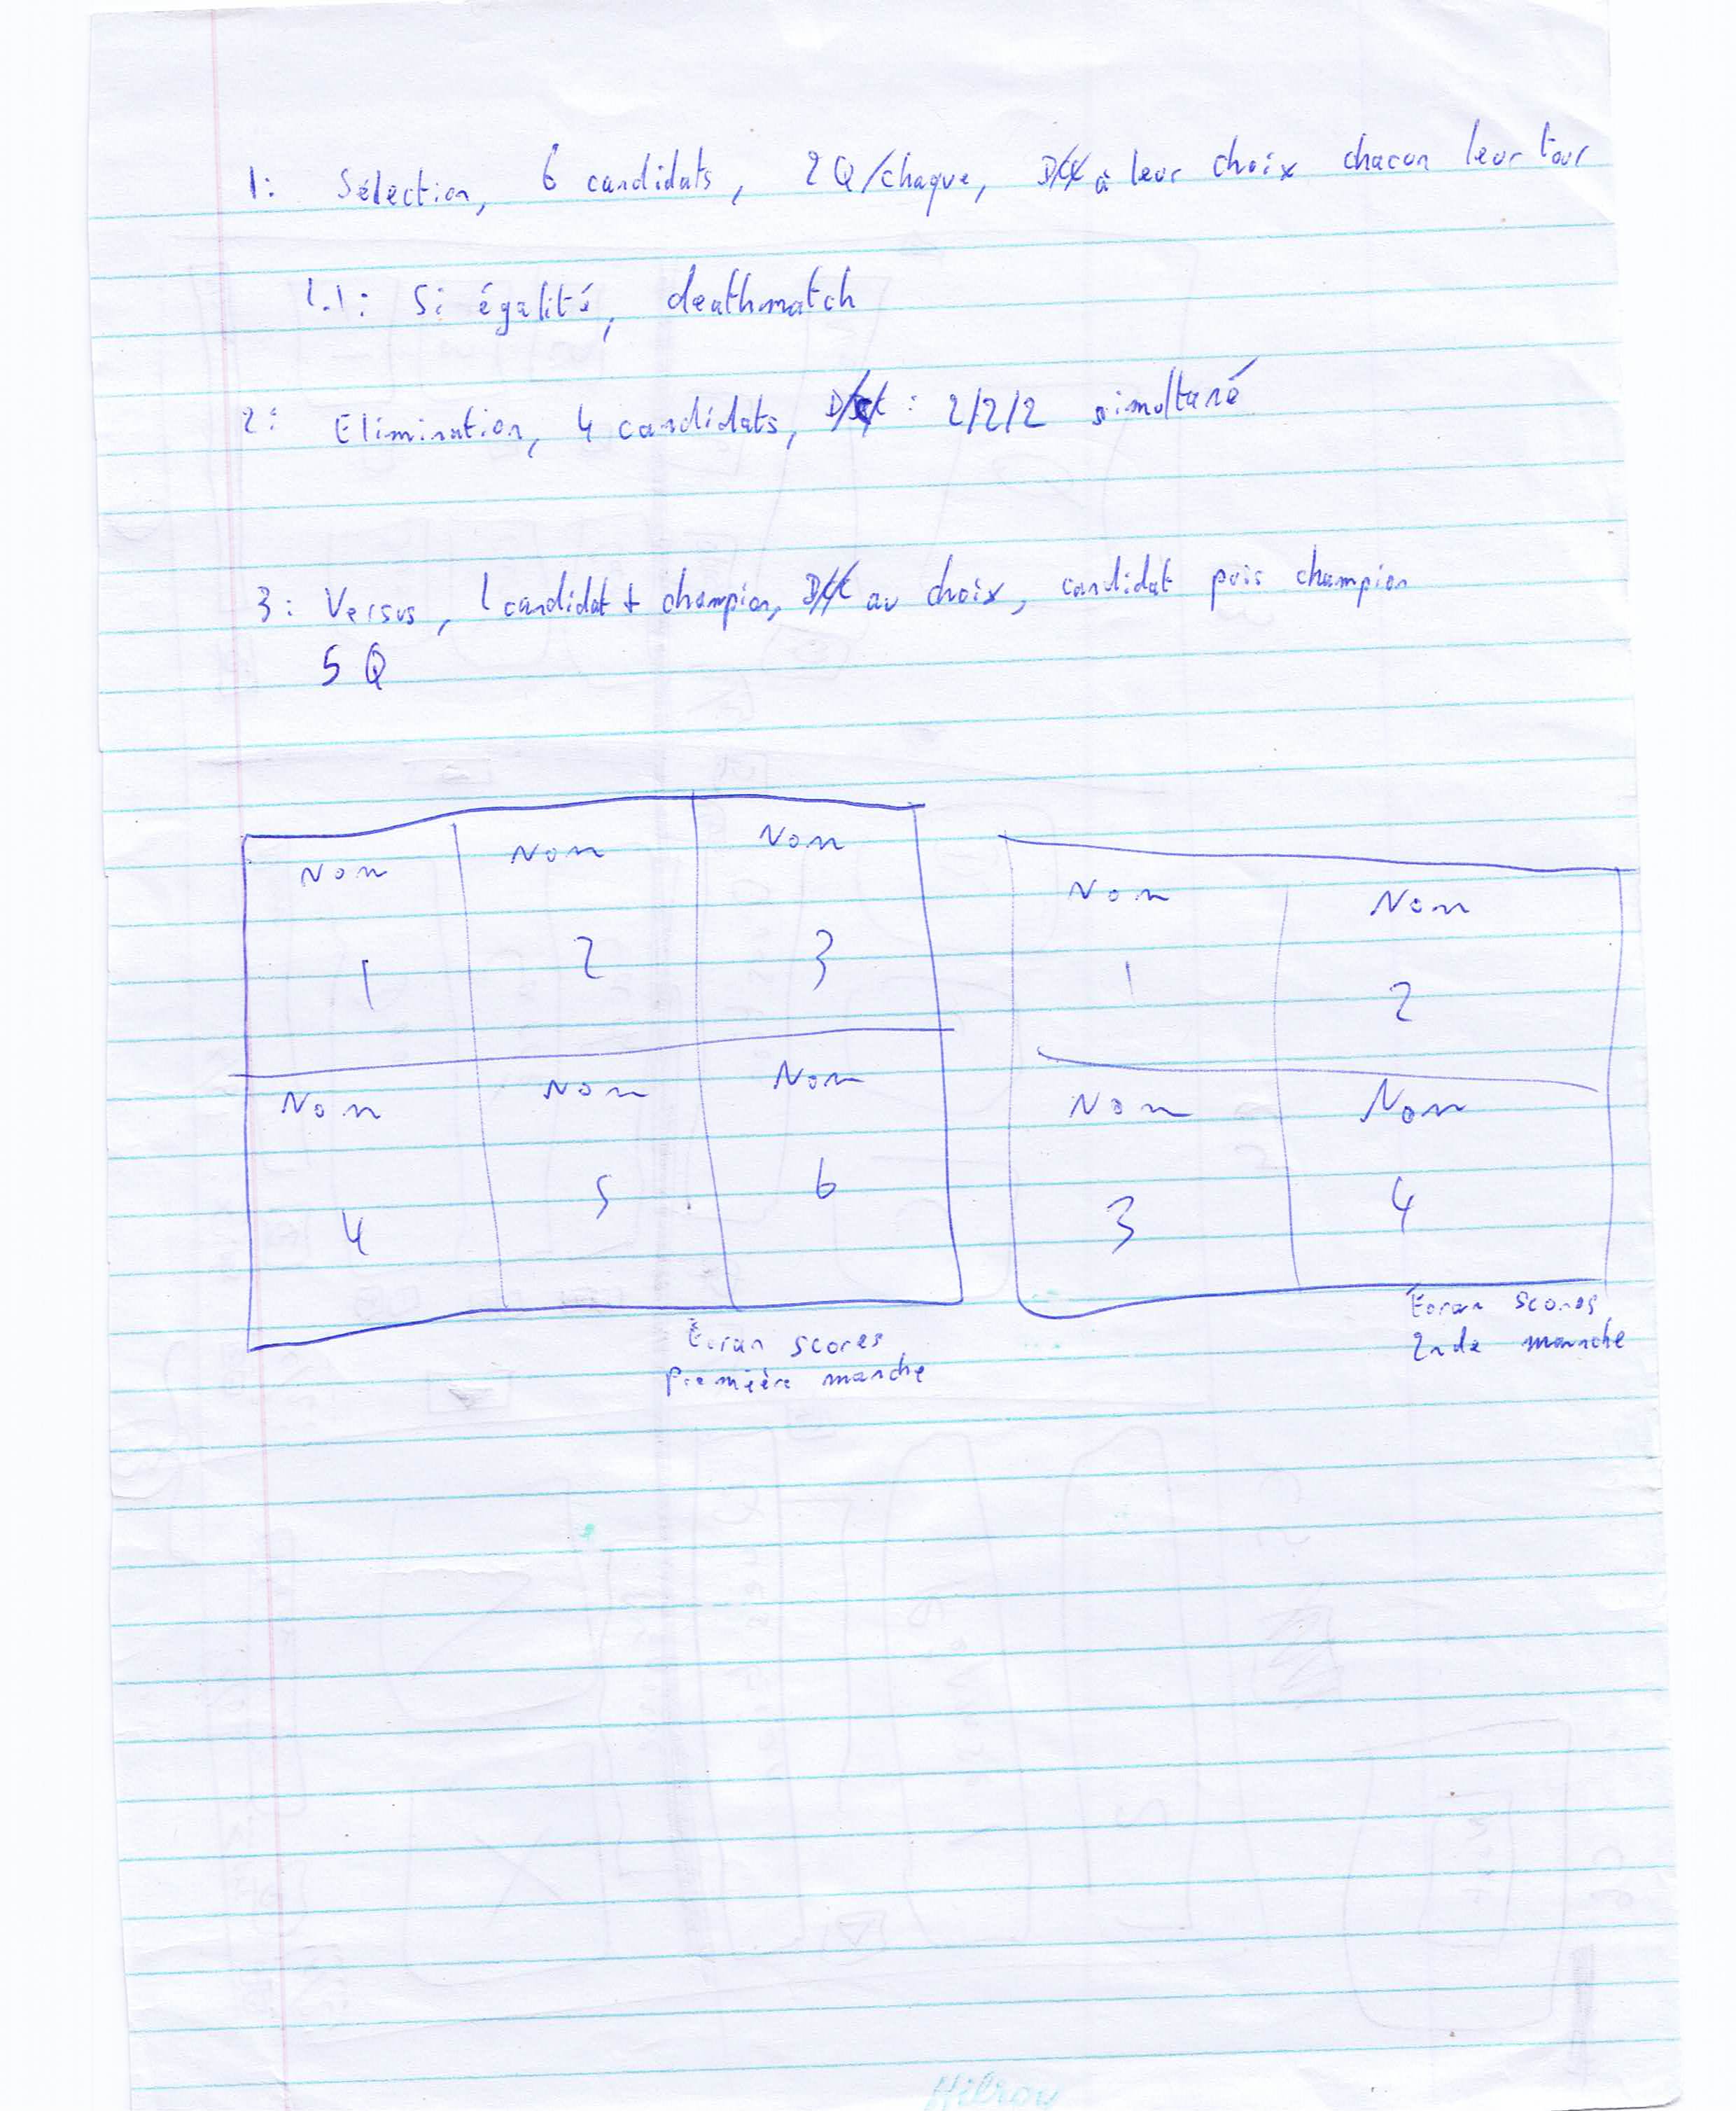 1: Sélection, 6 candidats, 2 Q/chaque, D/C/C à leur choix chacun leur tour
1.1: Si égalité, deathmatch
2: Elimination, 4 candidats, : 2/2/2 simultané
3: Versus, 1 candidat + champion, D/C/C au choix, candidat puis champion
5 Q
Nom Nom Nom
1 2 3
Nom Nom Nom
4 5 6
Écran scores
Première manche
Nom Nom
1 2
Nom Nom
3 4
Écran scores
2nde manche
Hilroy